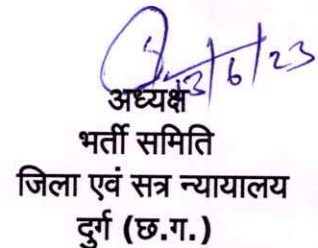 13/6/23
अध्यक्ष
भर्ती समिति
जिला एवं सत्र न्यायालय
दुर्ग (छ.ग.)